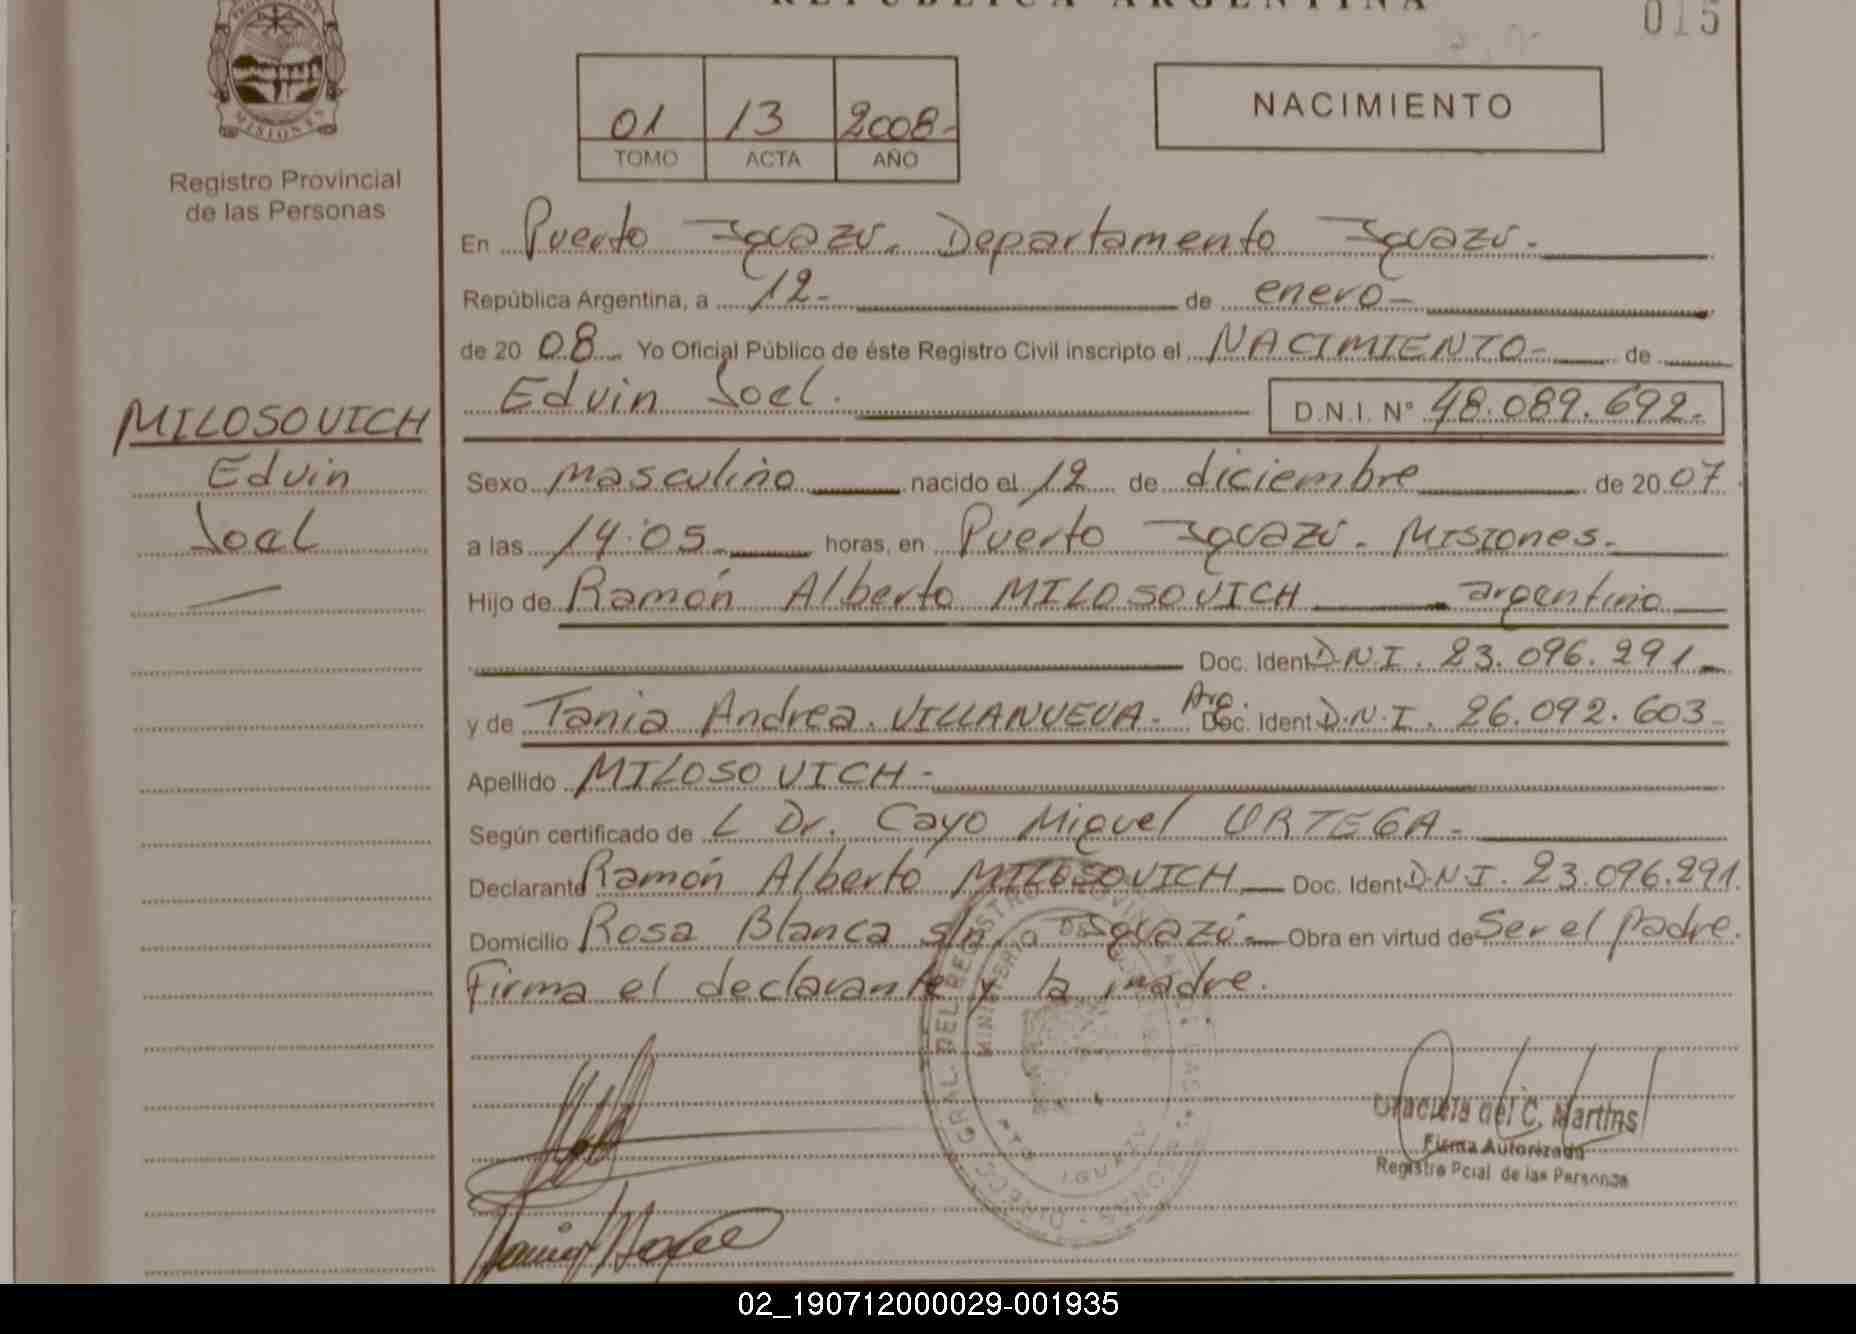 REPUBLICA ARGENTINA
015
MISIONES
Registro Provincial
de las Personas
01 13 2008-
TOMO ACTA AÑO
NACIMIENTO
En Puerto Iguazú. Departamento Iguazú.
República Argentina, a 12- de enero-
de 20 08 Yo Oficial Público de éste Registro Civil inscripto el NACIMIENTO- de
Edvin Joel. D.N.I. N° 48.089.692-
MILOSOVICH
Edvin
Joel
Sexo masculino nacido el 12 de diciembre de 20 07
a las 14:05 horas, en Puerto Iguazú. Misiones.
Hijo de Ramón Alberto MILOSOVICH argentino
Doc. Ident D.N.I. 23.096.291
y de Tania Andrea. VILLANUEVA- Arg. Doc. Ident D.N.I. 26.092.603
Apellido MILOSOVICH-
Según certificado de L Dr. Cayo Miguel URTEGA-
Declarante Ramón Alberto MILOSOVICH Doc. Ident D.N.I. 23.096.291.
Domicilio Rosa Blanca s/n Iguazú Obra en virtud de Ser el padre.
Firma el declarante y la madre.
DIRECC. GRAL. DEL REGISTRO PROVINCIAL DE LAS
MINISTERIO DE
PTO IGUAZU
Graciela del C. Martins
Firma Autorizada
Registro Pcial de las Personas
02_190712000029-001935